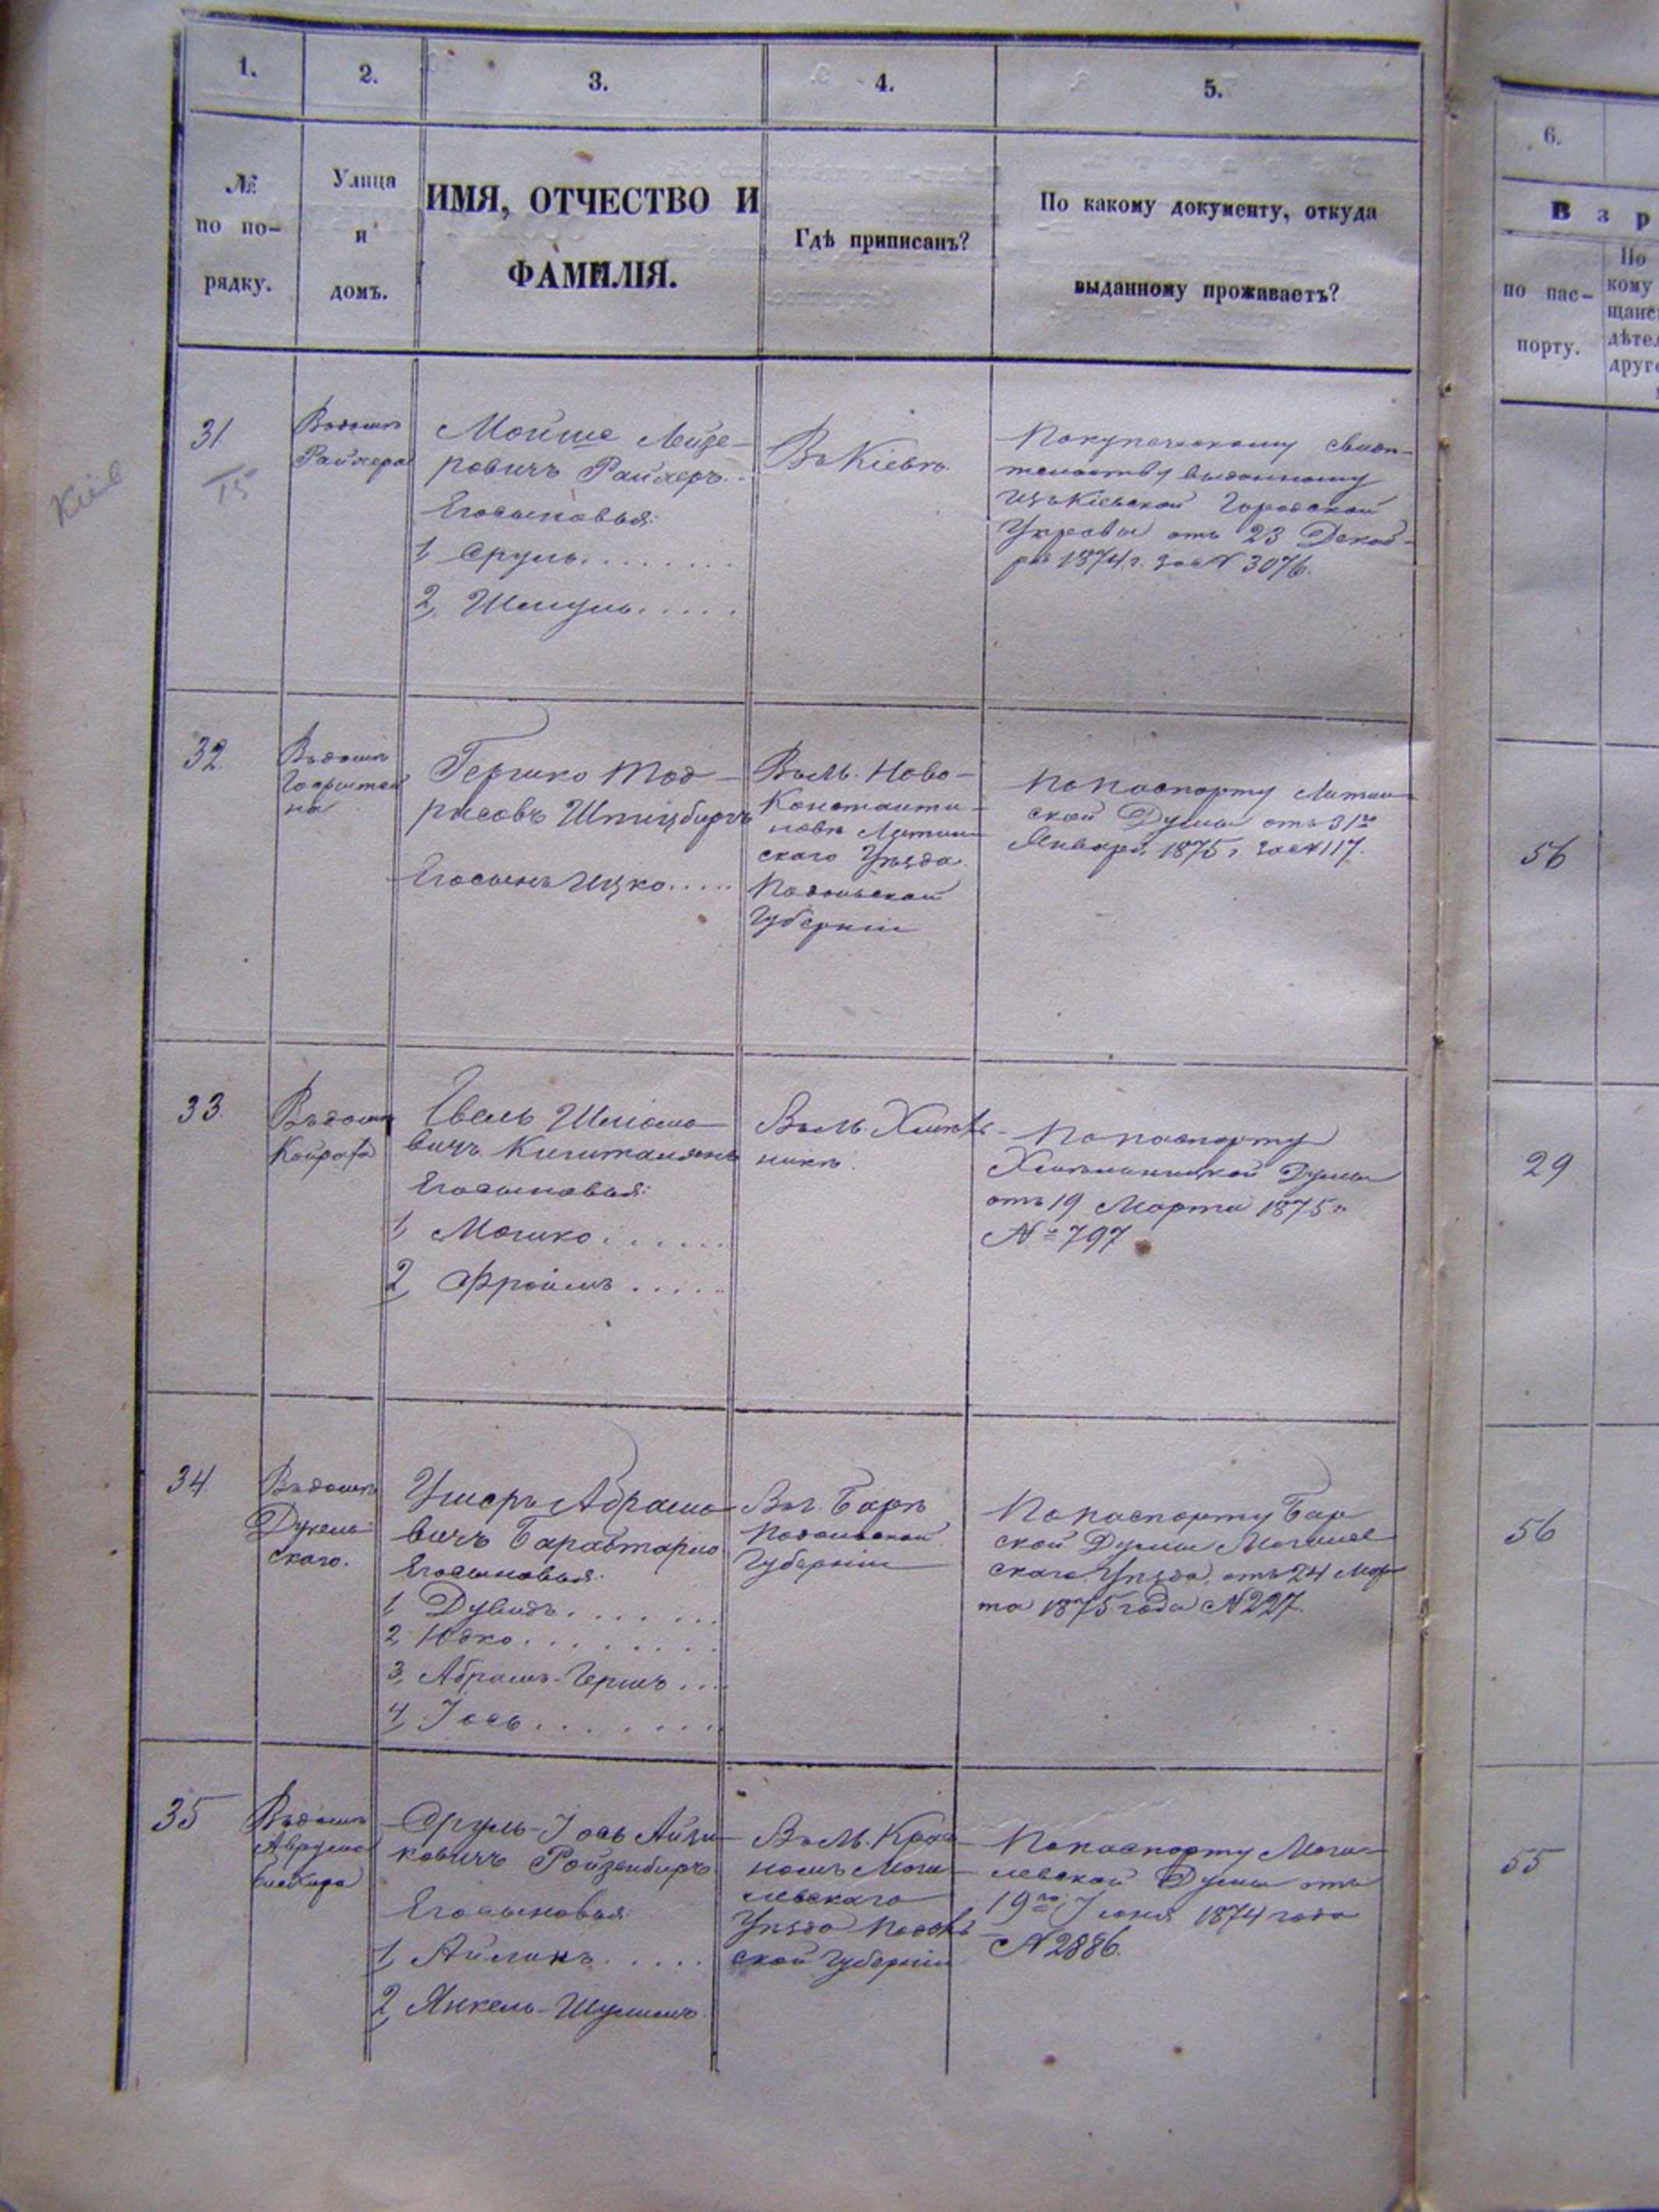 1.
2.
3.
4.
5.
№
по по-
рядку.
Улица
и
домъ.
ИМЯ, ОТЧЕСТВО И
ФАМИЛІЯ.
Гдѣ приписанъ?
По какому документу, откуда
выданному проживаетъ?
Кіев
31
15
Въ домѣ
Райхера
Мойше Лейзе-
ровичъ Райхеръ.
Его сыновья:
1, Сруль.......
2, Шмуль.....
Въ Кіевѣ.
По купеческому свидѣ-
тельству выданному
изъ Кіевской Городской
Управы отъ 23 Декаб-
ря 1874 г. за № 3076.
32.
Въ домѣ
Гершко Тод-
рисовъ Шпицбургъ
Его сынъ Ицко.....
Въ м. Ново-
Константи-
новѣ Летин-
скаго Уѣзда
Подольской
Губерніи
По паспорту Летин-
ской Думы отъ 31го
Января 1875 г. за № 117.
33.
Въ домѣ
Шлiомо-
вичъ
Его сыновья:
1, Мошко......
2, Фроимъ.....
Въ м. Хмѣль-
никѣ.
По паспорту
Хмѣльницкой Думы
отъ 19 Марта 1875 г.
№ 797
34.
Въ домѣ
скаго.
Ушеръ Абрамо-
вичъ
Его сыновья:
1, Дувидъ.......
2, Юдко........
3, Абрамъ-Гершъ...
4, Іось........
Въ г. Барѣ
Подольской
Губерніи
По паспорту Бар
ской Думы Могилев
скаго Уѣзда, отъ 24 Мар-
та 1875 года № 227.
35
Въ домѣ
Сруль-Іось Айзи-
ковичъ Ройзенбиръ
Его сыновья
1,
2, Янкель-Шулимъ.
Въ м. Крас-
номъ Моги-
левскаго
Уѣзда Подоль-
ской Губерніи
По паспорту Моги-
левской Думы отъ
19го Іюня 1874 года
№ 2886.
6.
В з р
по пас-
порту.
По
кому
щанс
дѣтел
друго
56
29
56
55